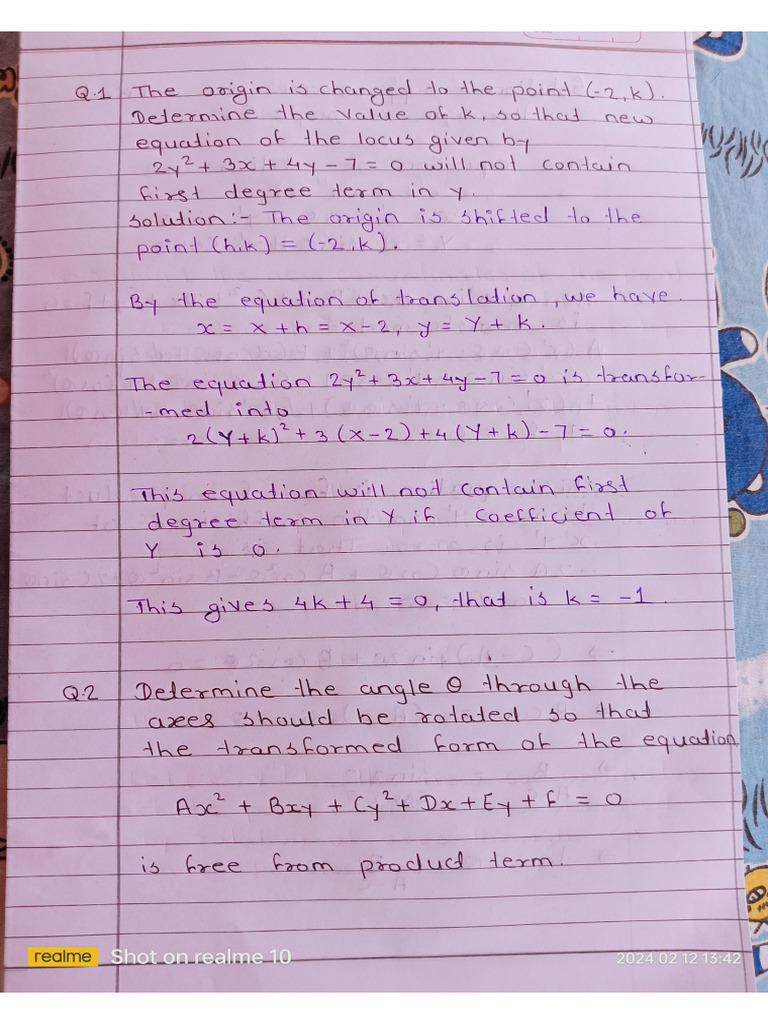 Q.1 The origin is changed to the point (-2, k).
Determine the value of k, so that new
equation of the locus given by
2y² + 3x + 4y - 7 = 0 will not contain
first degree term in Y.
Solution:- The origin is shifted to the
point (h,k) = (-2, k).
By the equation of translation, we have.
x = X + h = X - 2, y = Y + k.
The equation 2y² + 3x + 4y - 7 = 0 is transfor-
-med into
2(Y+k)² + 3(X-2) + 4(Y+k) - 7 = 0.
This equation will not contain first
degree term in Y if coefficient of
Y is 0.
This gives 4k + 4 = 0, that is k = -1.
Q.2 Determine the angle θ through the
axes should be rotated so that
the transformed form of the equation
Ax² + Bxy + Cy² + Dx + Ey + F = 0
is free from product term.
realme Shot on realme 10 2024 02 12 13:42